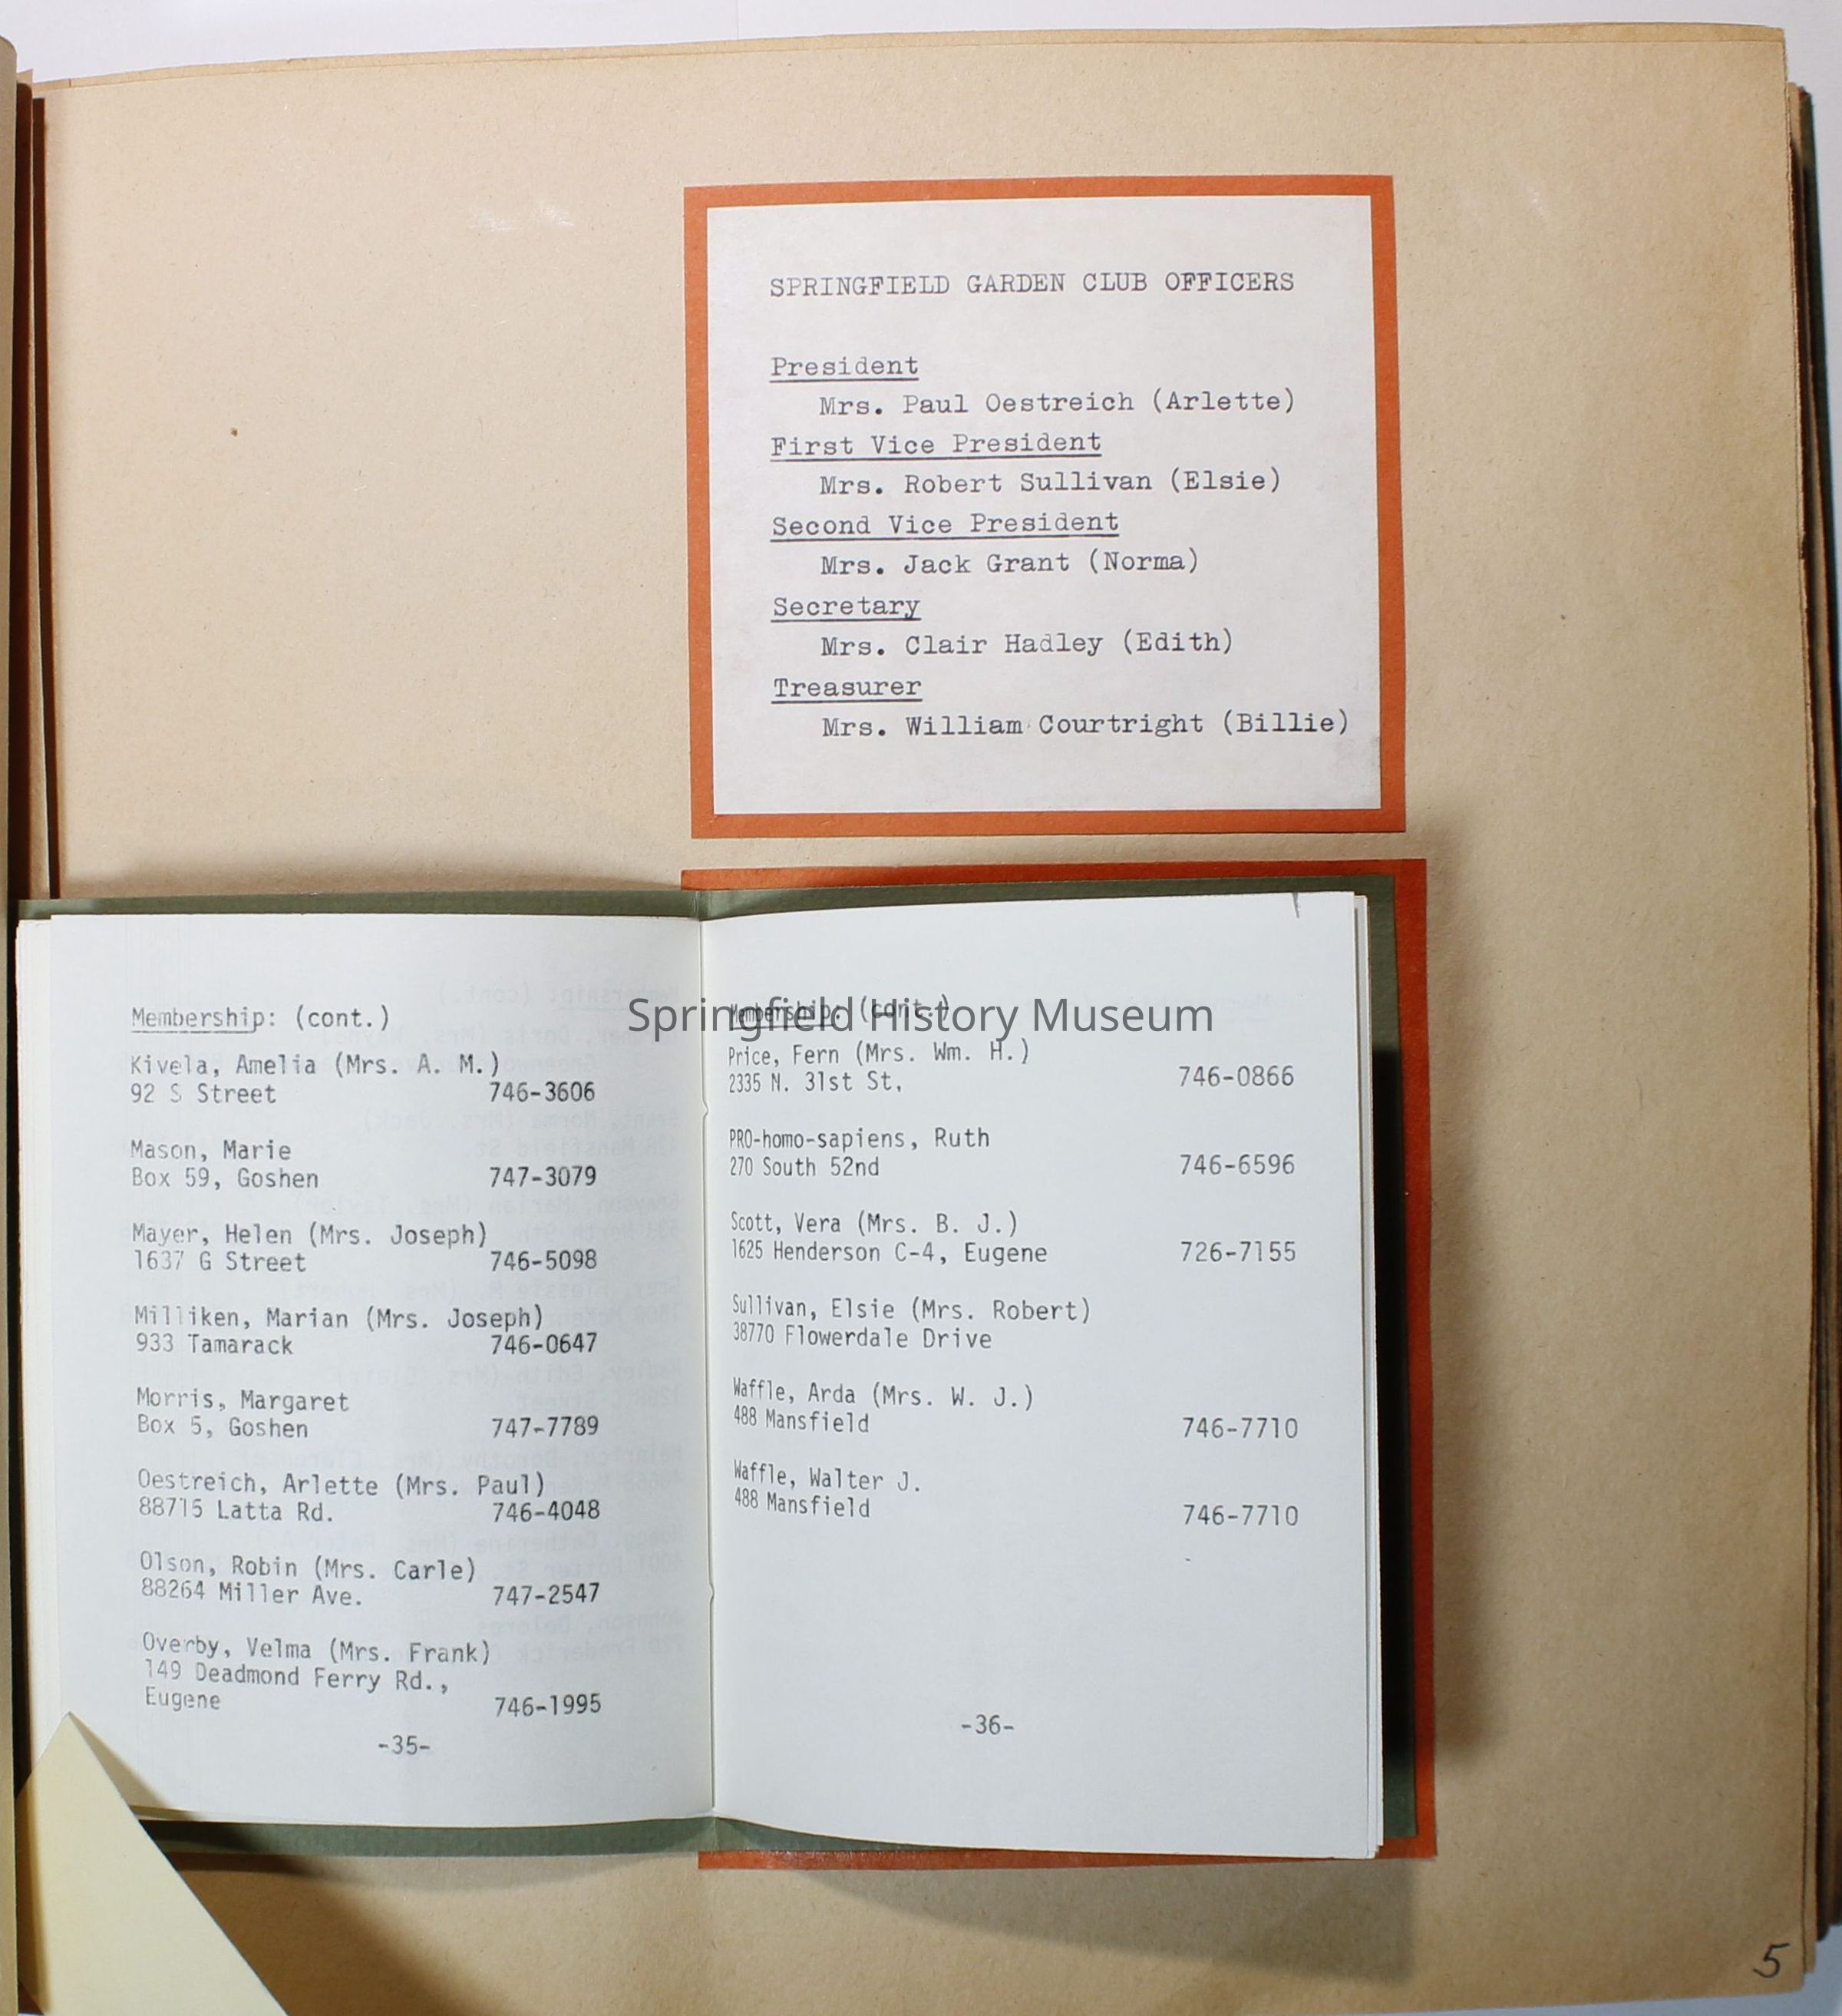 SPRINGFIELD GARDEN CLUB OFFICERS
President
Mrs. Paul Oestreich (Arlette)
First Vice President
Mrs. Robert Sullivan (Elsie)
Second Vice President
Mrs. Jack Grant (Norma)
Secretary
Mrs. Clair Hadley (Edith)
Treasurer
Mrs. William Courtright (Billie)
Membership: (cont.)
Kivela, Amelia (Mrs. A. M.)
92 S Street 746-3606
Mason, Marie
Box 59, Goshen 747-3079
Mayer, Helen (Mrs. Joseph)
1637 G Street 746-5098
Milliken, Marian (Mrs. Joseph)
933 Tamarack 746-0647
Morris, Margaret
Box 5, Goshen 747-7789
Oestreich, Arlette (Mrs. Paul)
88715 Latta Rd. 746-4048
Olson, Robin (Mrs. Carle)
88264 Miller Ave. 747-2547
Overby, Velma (Mrs. Frank)
149 Deadmond Ferry Rd.,
Eugene 746-1995
-35-
Membership: (cont.)
Springfield History Museum
Price, Fern (Mrs. Wm. H.)
2335 N. 31st St. 746-0866
PRO-homo-sapiens, Ruth
270 South 52nd 746-6596
Scott, Vera (Mrs. B. J.)
1625 Henderson C-4, Eugene 726-7155
Sullivan, Elsie (Mrs. Robert)
38770 Flowerdale Drive
Waffle, Arda (Mrs. W. J.)
488 Mansfield 746-7710
Waffle, Walter J.
488 Mansfield 746-7710
-36-
5